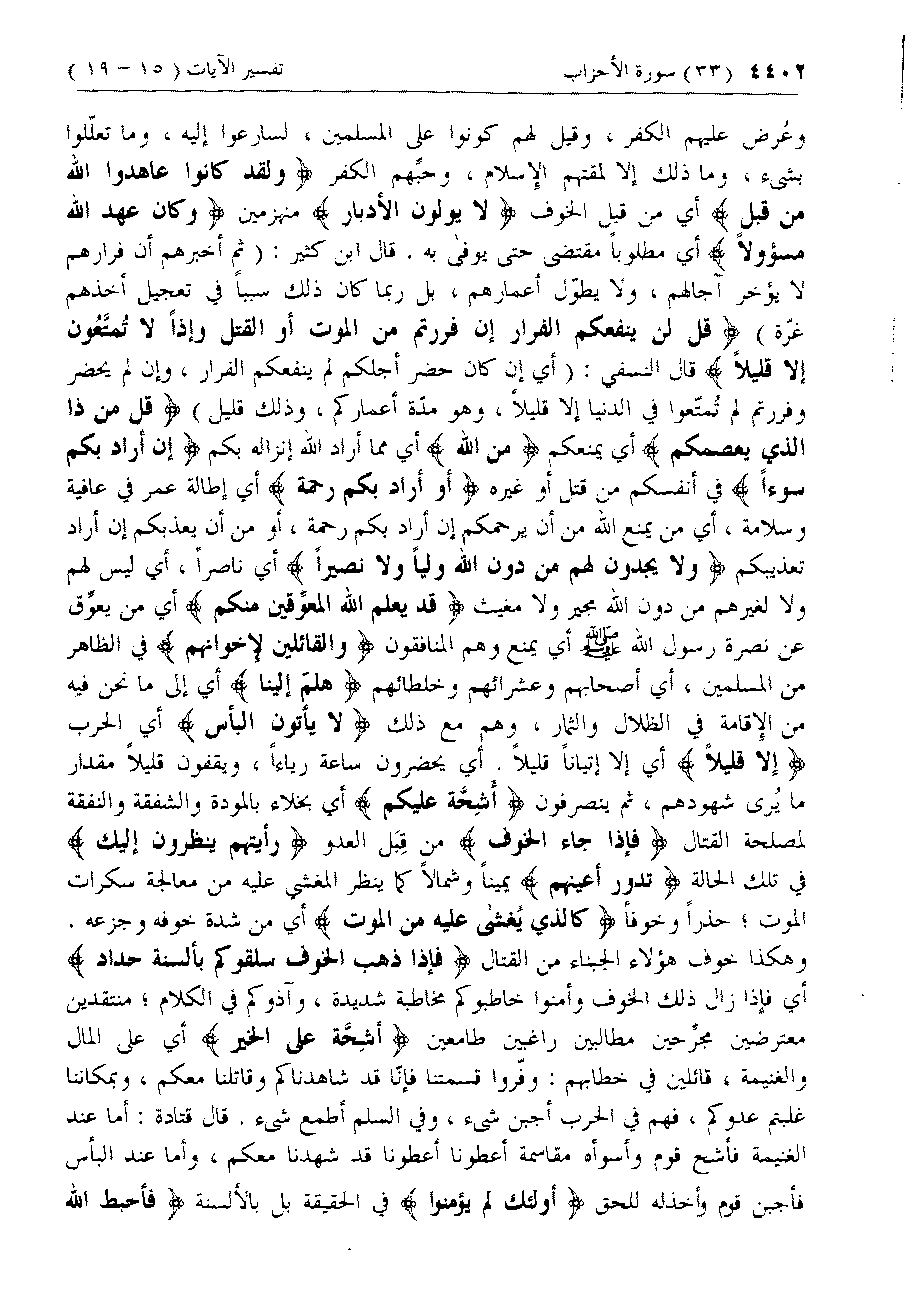 ٤٤٠٢ (٣٣) سورة الأحزاب تفسير الآيات ( ١٥ – ١٩ )
وعُرض عليهم الكفر ، وقيل لهم كونوا على المسلمين ، لسارعوا إليه ، وما تعلّلوا
بشيء ، وما ذلك إلا لمقتهم الإسلام ، وحبّهم الكفر ﴿ ولقد كانوا عاهدوا الله
من قبل ﴾ أي من قبل الخوف ﴿ لا يولون الأدبار ﴾ منهزمين ﴿ وكان عهد الله
مسؤولاً ﴾ أي مطلوباً مقتضى حتى يوفىٰ به . قال ابن كثير : ( ثم أخبرهم أن فرارهم
لا يؤخر آجالهم ، ولا يطوّل أعمارهم ، بل ربما كان ذلك سبباً في تعجيل أخذهم
غرّة ) ﴿ قل لن ينفعكم الفرار إن فررتم من الموت أو القتل وإذاً لا تُمتَّعُون
إلا قليلاً ﴾ قال النسفي : ( أي إن كان حضر أجلكم لم ينفعكم الفرار ، وإن لم يحضر
وفررتم لم تُمتّعوا في الدنيا إلا قليلاً ، وهو مدّة أعماركم ، وذلك قليل ) ﴿ قل من ذا
الذي يعصمكم ﴾ أي يمنعكم ﴿ من الله ﴾ أي مما أراد الله إنزاله بكم ﴿ إن أراد بكم
سوءاً ﴾ في أنفسكم من قتل أو غيره ﴿ أو أراد بكم رحمة ﴾ أي إطالة عمر في عافية
وسلامة ، أي من يمنع الله من أن يرحمكم إن أراد بكم رحمة ، أو من أن يعذبكم إن أراد
تعذيبكم ﴿ ولا يجدون لهم من دون الله ولياً ولا نصيراً ﴾ أي ناصراً ، أي ليس لهم
ولا لغيرهم من دون الله مجير ولا مغيث ﴿ قد يعلم الله المعوّقين منكم ﴾ أي من يعوِّق
عن نصرة رسول الله ﷺ أي يمنع وهم المنافقون ﴿ والقائلين لإخوانهم ﴾ في الظاهر
من المسلمين ، أي أصحابهم وعشرائهم وخلطائهم ﴿ هلمّ إلينا ﴾ أي إلى ما نحن فيه
من الإقامة في الظلال والثمار ، وهم مع ذلك ﴿ لا يأتون البأس ﴾ أي الحرب
﴿ إلا قليلاً ﴾ أي إلا إتياناً قليلاً . أي يحضرون ساعة رياءاً ، ويقفون قليلاً مقدار
ما يُرى شهودهم ، ثم ينصرفون ﴿ أشِحَّة عليكم ﴾ أي بخلاء بالمودة والشفقة والنفقة
لمصلحة القتال ﴿ فإذا جاء الخوف ﴾ من قِبَل العدو ﴿ رأيتهم ينظرون إليك ﴾
في تلك الحالة ﴿ تدور أعينهم ﴾ يميناً وشمالاً كما ينظر المغشي عليه من معالجة سكرات
الموت ؛ حذراً وخوفاً ﴿ كالذي يُغشىٰ عليه من الموت ﴾ أي من شدة خوفه وجزعه .
وهكذا خوف هؤلاء الجبناء من القتال ﴿ فإذا ذهب الخوف سلقوكم بألسنة حداد ﴾
أي فإذا زال ذلك الخوف وأمنوا خاطبوكم مخاطبة شديدة ، وآذوكم في الكلام ؛ منتقدين
معترضين مجرِّحين مطالبين راغبين طامعين ﴿ أشِحَّة على الخير ﴾ أي على المال
والغنيمة ، قائلين في خطابهم : وفّروا قسمتنا فإنّا قد شاهدناكم وقاتلنا معكم ، وبمكاننا
غلبتم عدوكم ، فهم في الحرب أجبن شيء ، وفي السلم أطمع شيء . قال قتادة : أما عند
الغنيمة فأشح قوم وأسوأه مقاسمة أعطونا أعطونا قد شهدنا معكم ، وأما عند البأس
فأجبن قوم وأخذله للحق ﴿ أولئك لم يؤمنوا ﴾ في الحقيقة بل بالألسنة ﴿ فأحبط الله